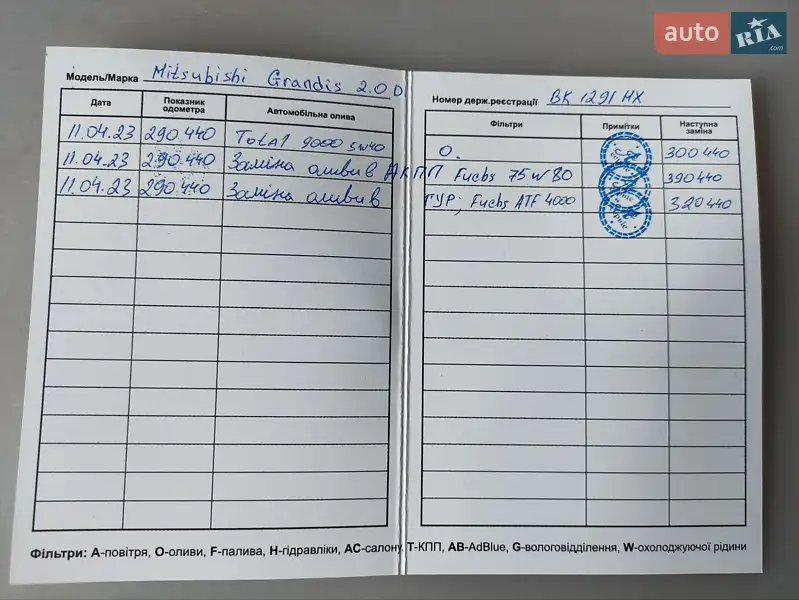 auto RIA.com
Модель/Марка Mitsubishi Grandis 2.0 D
Номер держ.реєстрації ВК 1291 НХ
Дата Показник одометра Автомобільна олива Фільтри Примітки Наступна заміна
11.04.23 290 440 Total 9000 5w40 О. 300 440
11.04.23 290 440 Заміна оливи в АКПП Fuchs 75w80 390 440
11.04.23 290 440 Заміна оливи в ГУР; Fuchs ATF 4000 320 440
Фільтри: А-повітря, О-оливи, F-палива, Н-гідравліки, АС-салону, Т-КПП, АВ-AdBlue, G-вологовідділення, W-охолоджуючої рідини